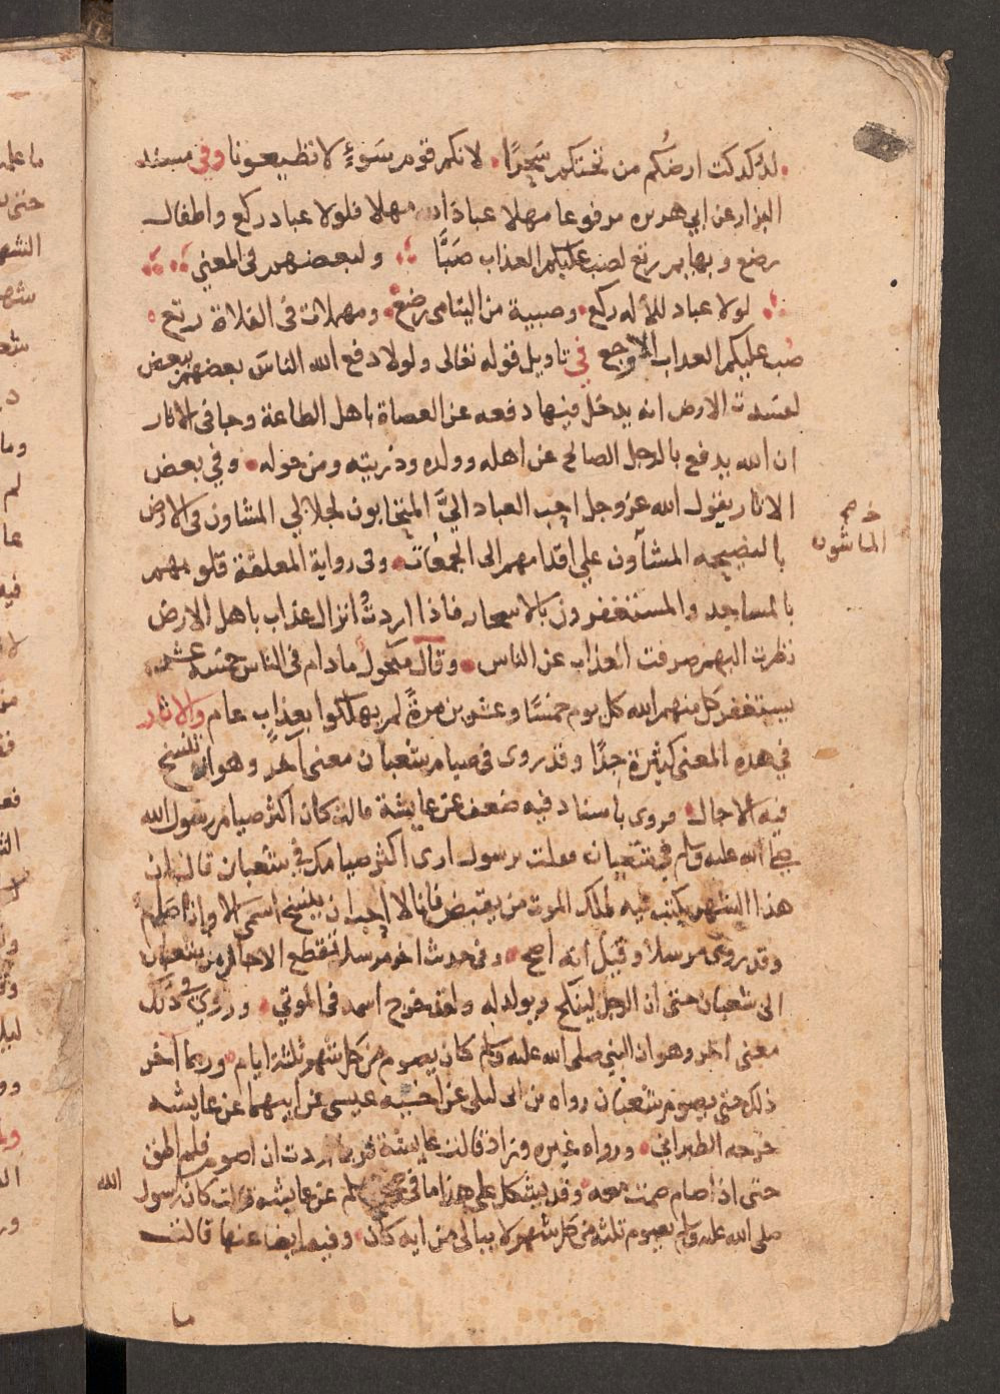 لدكدكت ارضُكم من تحتكم سَحَرًا لانكم قوم سَوءٍ لا تطيعونا وفي مسند
البزار عن ابي هريره مرفوعا مهلا عباد الله مهلا فلولا عباد ركع واطفال
رضع وبهايم رتع لصب عليكم العذاب صَبًّا ولبعضهم في المعني
لولا عباد للاله ركع وصبية من اليتامى رضع ومهملات في الفلاة رتع
صُب عليكم العذاب الاوجع في تاويل قوله تعالى ولولا دفع الله الناسَ بعضهم ببعض
لفسدت الارض انه يدخل فيها دفعه عن العصاة باهل الطاعة وجا في الاثار
ان الله يدفع بالرجل الصالح عن اهله وولده وذريته ومن حوله وفي بعض
الاثار يقول الله عز وجل احب العباد اليَّ المتحابون لجلالي المشاون في الارض
بالنصيحه المشآون علي اقدامهم الى الجمعات وفي رواية المعلقة قلوبهم
بالمساجد والمستغفرون بالاسحار فاذا اردتُ انزال عذاب باهل الارض
نظرت اليهم صرفت العذاب عن الناس وقال مكحول مادام في الناس خمسة عشر
يستغفر كل منهم الله كل يوم خمسًا وعشرين مرةً لم يهلكوا بعذاب عام والاثار
في هذه المعنى كثيرة جدًا وقد روى في صيام شعبان معنى آخر وهو انه تنسخ
فيه الاجال فروى باسناد فيه ضعف عن عايشة قالت كان اكثر صيام رسول الله
صلى الله عليه وسلم في شعبان فقلت يرسول ارى اكثر صيامك في شعبان قال ان
هذا الشهر يكتب فيه لملك الموت من يقبض فانا لا احب ان ينسخ اسمى الا وانا صايم
وقد روى مرسلا وقيل انه اصح وفي حديث اخر مرسل تقطع الاجال من شعبان
الى شعبان حتى ان الرجل لينكح ويولد له ولقد خرج اسمه في الموتي وروي في ذلك
معنى اخر وهو ان النبي صلى الله عليه وسلم كان يصوم من كل شهر ثلثة ايام وربما آخر
ذلك حتى يصوم شعبان رواه بن ابي ليلى عن اخيه عيسى عن ابيهما عن عايشه
خرجه الطبراني ورواه غيره وزاد قالت عايشة فربما اردت ان اصوم فلم اطق
حتى اذا صام صمت معه وقد يشكل على هذا ما في صحيح مسلم عن عايشه قالت كان رسول الله
صلى الله عليه وسلم يصوم ثلثة من كل شهر لا يبالى من ايه كان وفيه ايضا عنها قالت
الماشون
ما